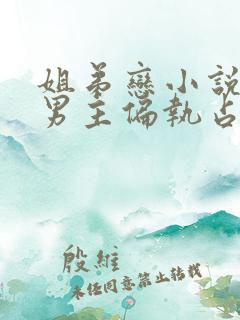 姐弟戀小說
男主偏執占
殷維
未经同意禁止转载